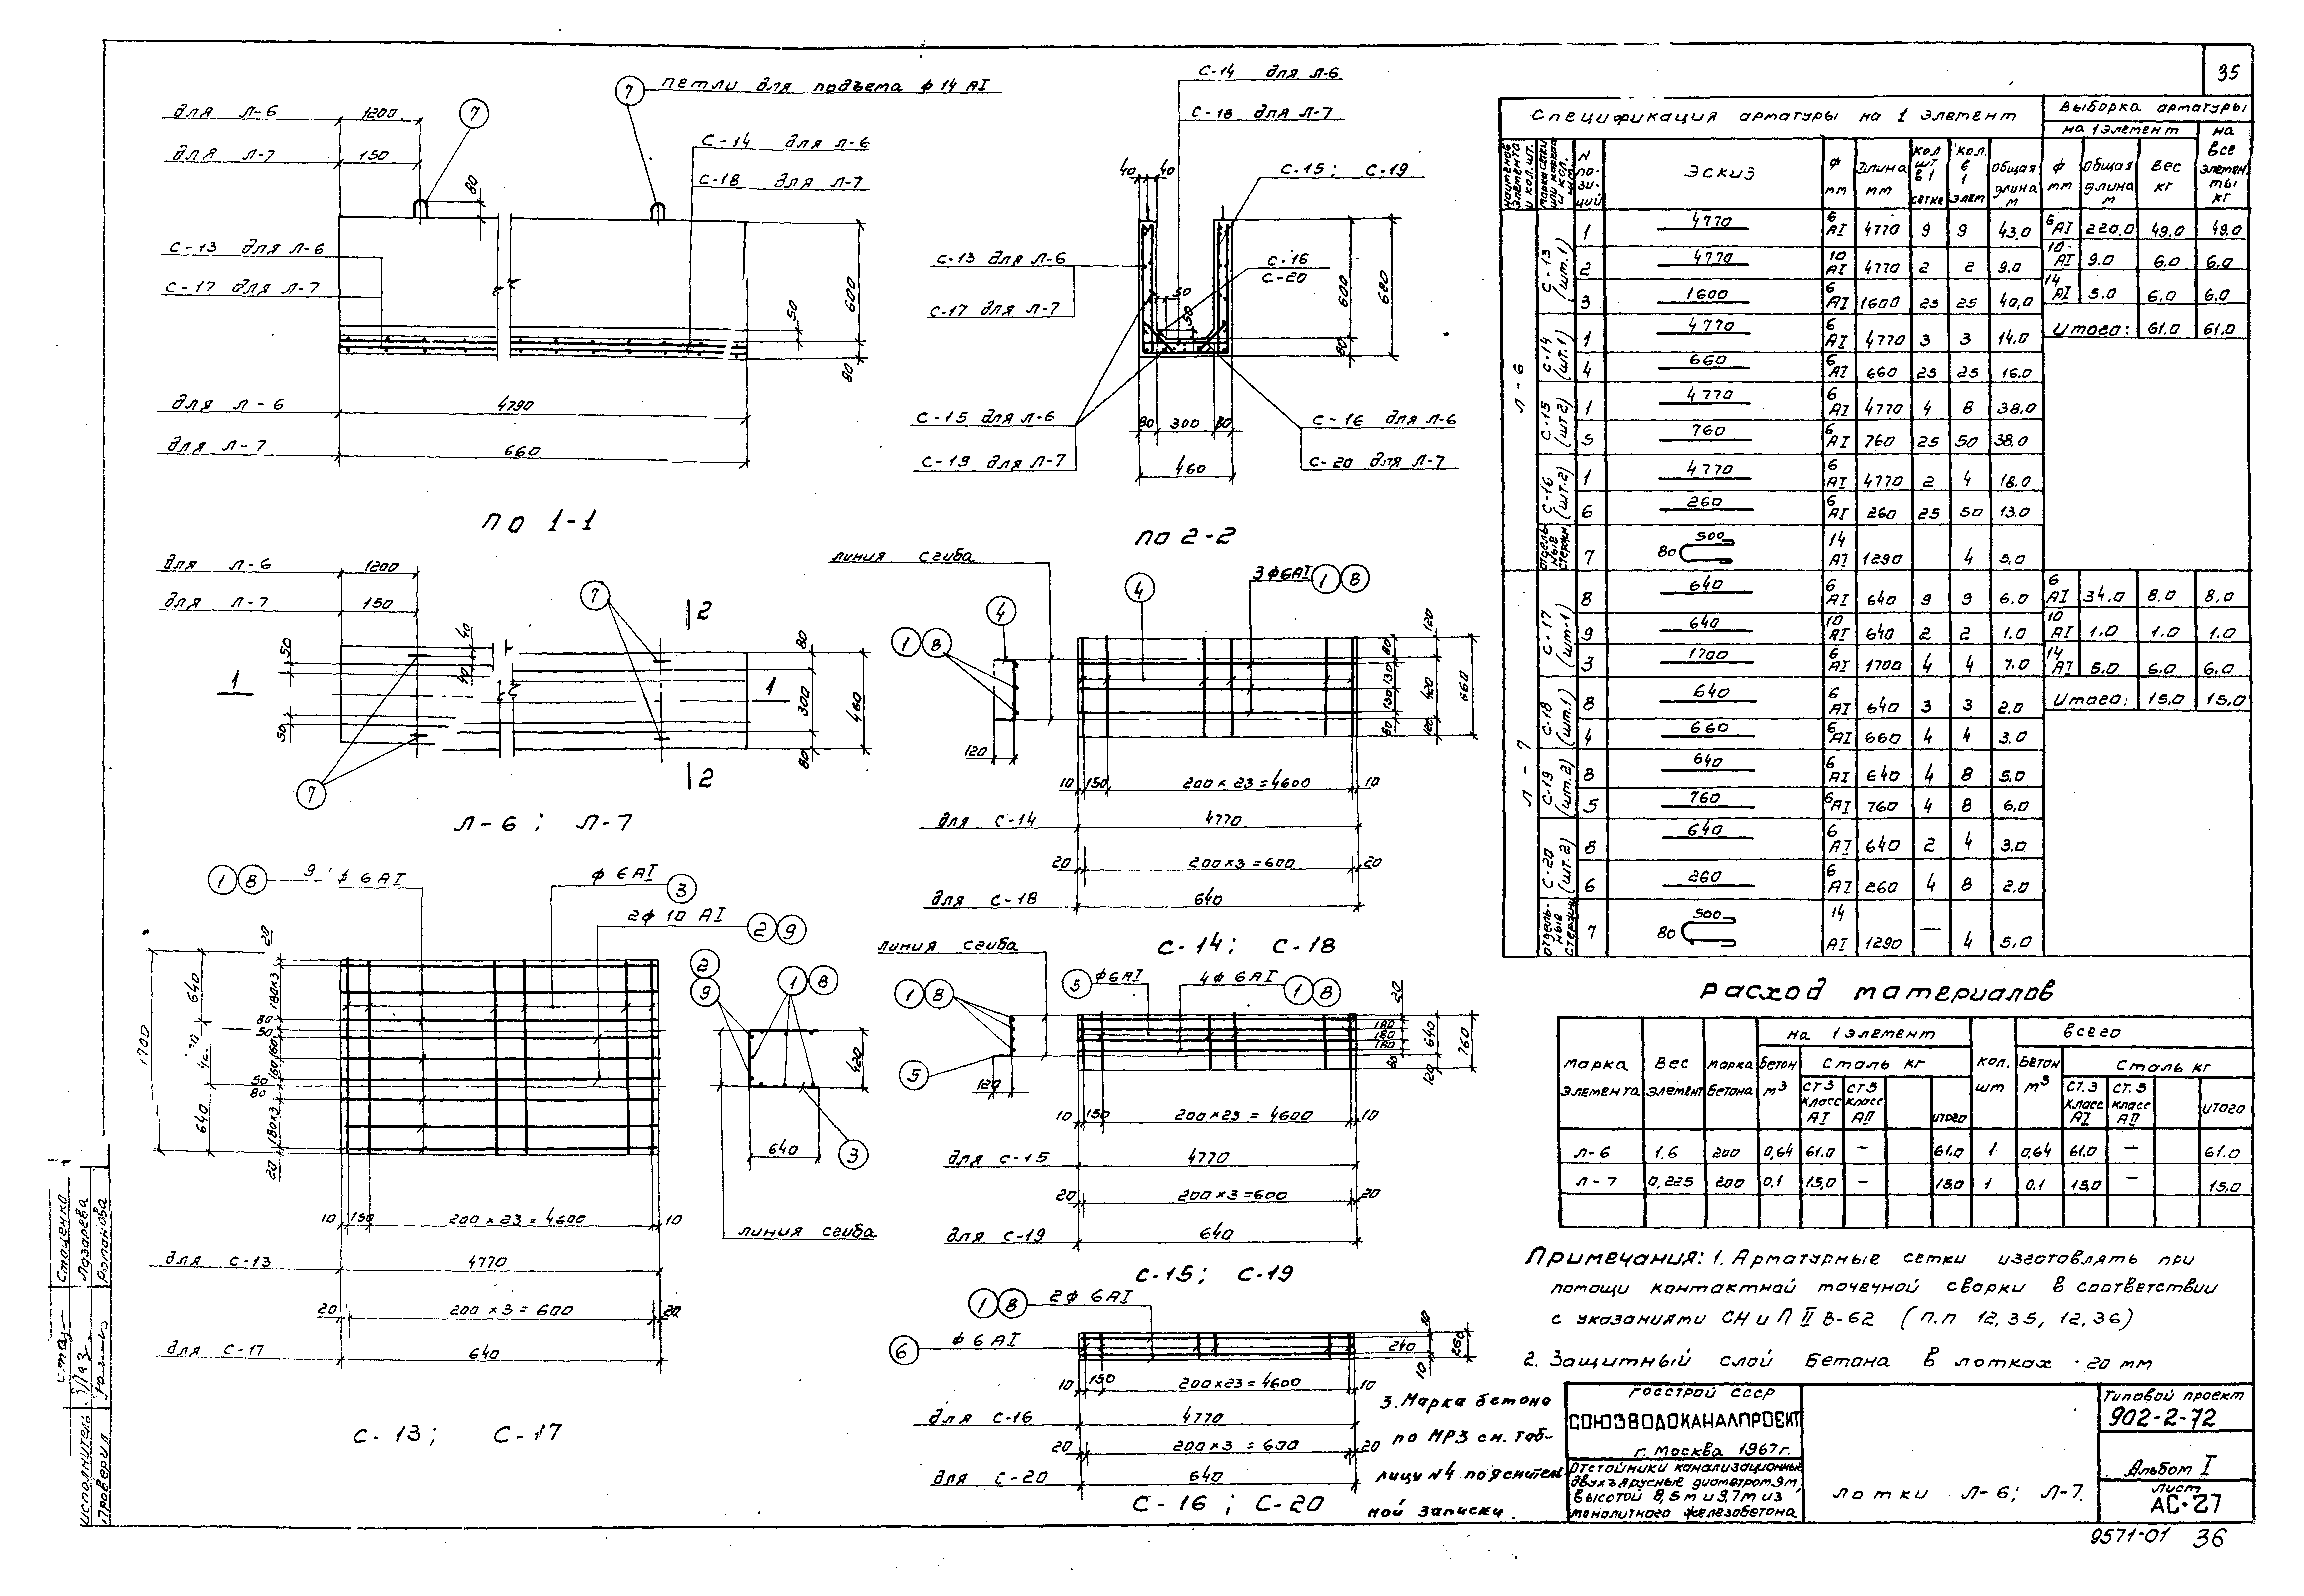 35
для Л-6 1200
для Л-7 150
7
7 петли для подъема ф 14 АI
С-14 для Л-6
С-18 для Л-7
80
С-13 для Л-6
С-17 для Л-7
50 600
80
для Л-6 4790
для Л-7 660
по 1-1
С-14 для Л-6
С-18 для Л-7
40 40
С-15; С-19
С-13 для Л-6
С-17 для Л-7
С-16
С-20
50
50
600 680
80
С-15 для Л-6
С-19 для Л-7
80 300 80
С-16 для Л-6
С-20 для Л-7
460
по 2-2
для Л-6 1200
для Л-7 150
7
2
50 40 40 80
1 1
300 460
50 80
2
7
Л-6; Л-7
линия сгиба
4
4
3ф6АI 1 8
1 8
120
80 130 130 80
120 420 120
660
10 150 200 x 23 = 4600 10
для С-14 4770
20 200x3=600 20
для С-18 640
С-14; С-18
1 8 9 ф 6 АI
ф 6 АI 3
2ф 10 АI 2 9
20
180x3
80
50
160
160
50
80
180x3
20
640
640
1700
2
9
1 8
420
640
3
линия сгиба
10 150 200 x 23 = 4600 10
для С-13 4770
20 200 x 3 = 600 20
для С-17 640
С-13; С-17
линия сгиба
5 ф6АI 4ф 6АI 1 8
1 8
5
120
20
180
180
180
80
640
120
760
10 150 200x23 = 4600 10
для С-15 4770
20 200 x 3 =600 20
для С-19 640
С-15; С-19
1 8 2ф 6АI
6 ф 6 АI
10
240
10
260
10 150 200x23 = 4600 10
для С-16 4770
20 200x3 = 600 20
для С-20 640
С-16; С-20
Спецификация арматуры на 1 элемент
Выборка арматуры
на 1 элемент на все элементы кг
наименов элемента и кол. шт. марка сетки или каркаса и кол. шт. N позиций Эскиз ф мм Длина мм кол шт в 1 сетке кол. в 1 элем общая длина м ф мм общая длина м вес кг
Л-6
С-13 (шт.1)
1 4770 6 АI 4770 9 9 43,0 6 АI 220.0 49.0 49.0
2 4770 10 АI 4770 2 2 9.0 10 АI 9.0 6.0 6.0
3 1600 6 АI 1600 25 25 40,0 14 АI 5.0 6.0 6.0
С-14 (шт.1)
1 4770 6 АI 4770 3 3 14.0 Итого: 61.0 61.0
4 660 6 АI 660 25 25 16.0
С-15 (шт 2)
1 4770 6 АI 4770 4 8 38.0
5 760 6 АI 760 25 50 38.0
С-16 (шт.2)
1 4770 6 АI 4770 2 4 18.0
6 260 6 АI 260 25 50 13.0
отдельные стержни
7 500 80 14 АI 1290 4 5,0
Л-7
С-17 (шт-1)
8 640 6 АI 640 9 9 6.0 6 АI 34.0 8.0 8.0
9 640 10 АI 640 2 2 1.0 10 АI 1.0 1.0 1.0
3 1700 6 АI 1700 4 4 7.0 14 АI 5.0 6.0 6.0
С-18 (шт.1)
8 640 6 АI 640 3 3 2.0 Итого: 15,0 15,0
4 660 6 АI 660 4 4 3.0
С-19 (шт.2)
8 640 6 АI 640 4 8 5.0
5 760 6 АI 760 4 8 6.0
С-20 (шт.2)
8 640 6 АI 640 2 4 3.0
6 260 6 АI 260 4 8 2.0
отдельные стержни
7 500 80 14 АI 1290 — 4 5,0
Расход материалов
марка элемента Вес элемент марка бетона на 1 элемент кол. шт всего
бетон м³ Сталь кг бетон м³ Сталь кг
СТ3 класс АI СТ5 класс АII итого СТ.3 класс АI СТ.5 класс АII итого
Л-6 1.6 200 0,64 61.0 — 61.0 1 0,64 61.0 — 61.0
Л-7 0,225 200 0,1 15,0 — 15,0 1 0.1 15,0 — 15,0
Примечания: 1. Арматурные сетки изготовлять при
помощи контактной точечной сварки в соответствии
с указаниями СНиП II В-62 (п.п 12,35, 12,36)
2. Защитный слой бетона в лотках - 20 мм
3. Марка бетона
по МРЗ см. таб-
лицу N4 пояснител
ной записки.
Госстрой СССР
СОЮЗВОДОКАНАЛПРОЕКТ
г. Москва 1967г.
Отстойники канализационные
двухъярусные диаметром 9м,
высотой 8,5м и 9,7м из
монолитного железобетона
Лотки Л-6; Л-7.
Типовой проект
902-2-72
Альбом I
Лист
АС-27
9571-01 36
исполнитель Стаценко
Лазарева
Проверил Романова